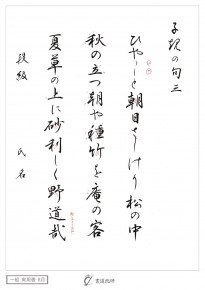 子規の句三
ひやひやと朝日うけけり松の中
秋の立つ朝や種竹を庵の客
夏草の上に砂利しく野道哉
段級 氏名